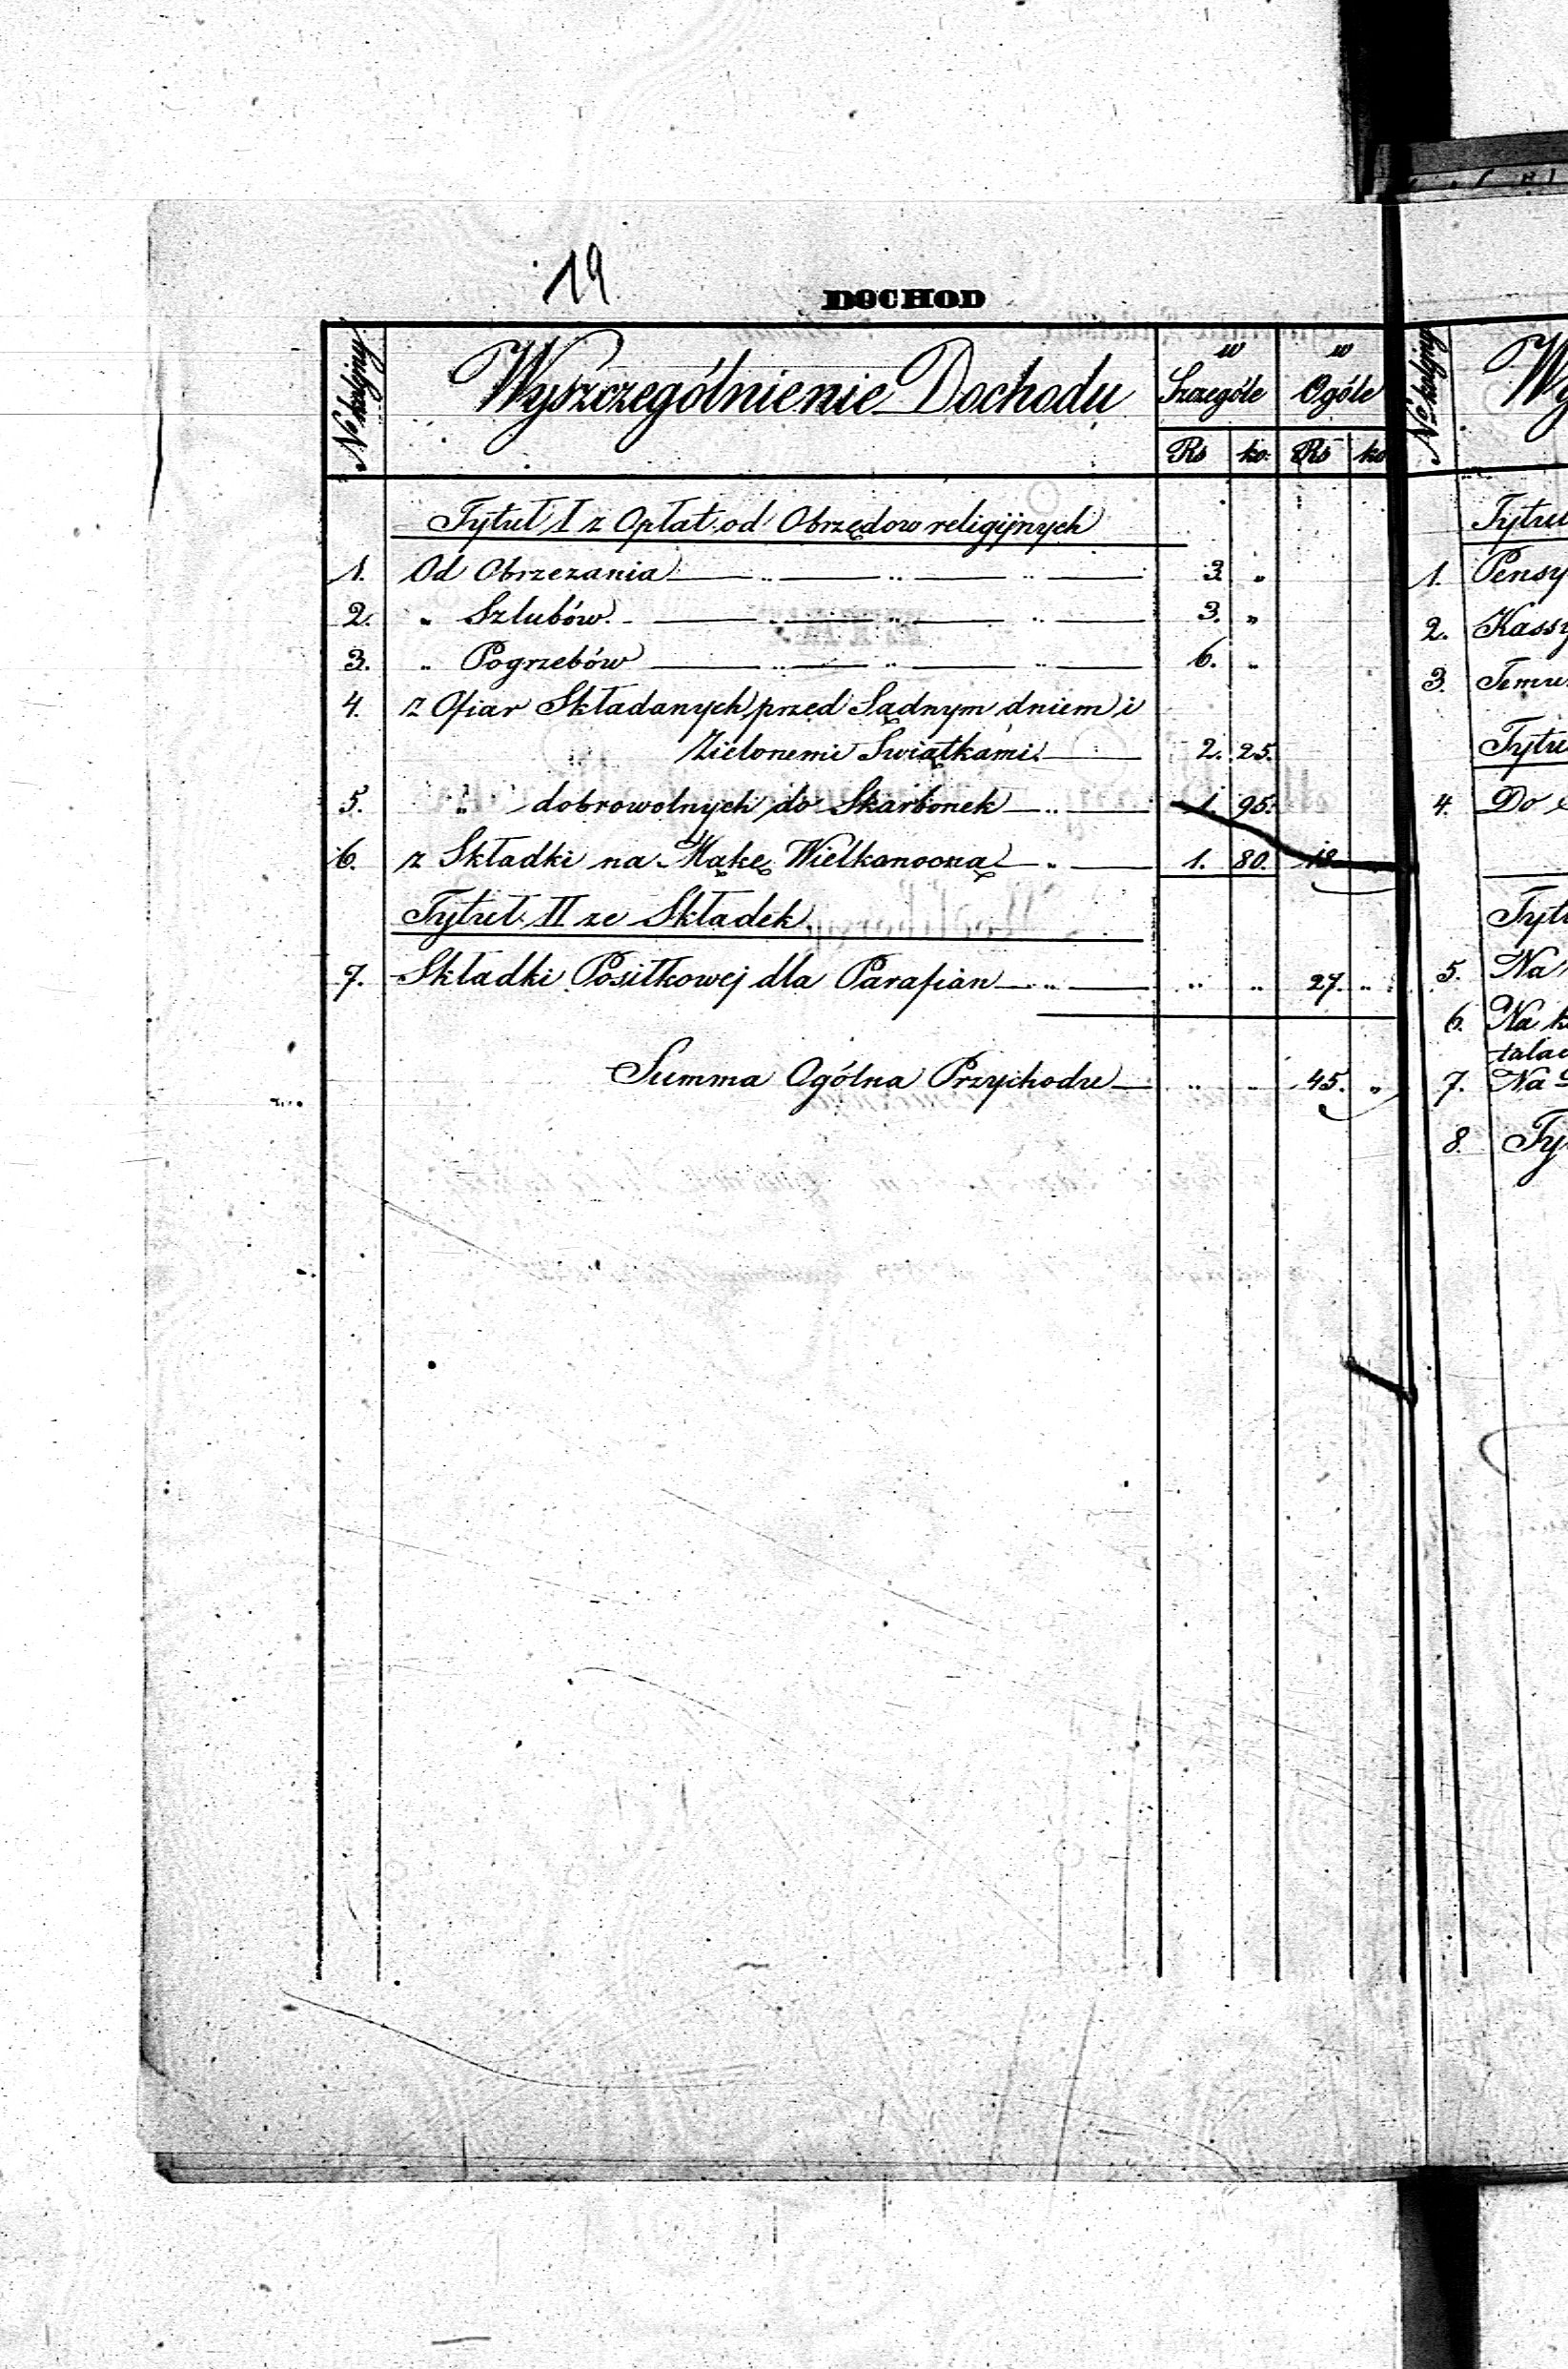 19
DOCHOD
No kolejny Wyszczególnienie Dochodu w Szczególe w Ogóle
Rs ko. Rs ko
Tytuł I z Opłat od Obrzędow religijnych
1. Od Obrzezania 3 "
2. " Szlubów 3. "
3. " Pogrzebów 6. "
4. z Ofiar Składanych przed Sądnym dniem i
Zielonemi Swiątkami 2. 25.
5. " dobrowolnych do Skarbonek 1. 95.
6. z Składki na Mąkę Wielkanocną 1. 80. 18
Tytuł II ze Składek
7. Składki Posiłkowej dla Parafian " " 27. "
Summa Ogólna Przychodu " " 45. "
No kolejny
1. Pensy
2. Kassy
3.
4. Do
5. Na
6. Na
7. Na
8.